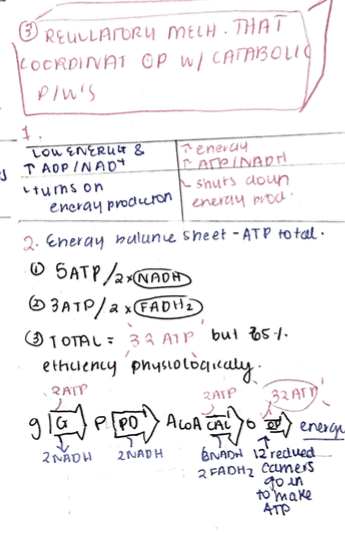 ③ REGULATORY MECH. THAT
COORDINAT OP W/ CATABOLIC
P/W'S
1.
LOW ENERGY &
↑ ADP/NAD+
↳ turns on
energy production
↑ energy
↑ ATP/NADH
↳ shuts down
energy prod.
2. Energy balance sheet - ATP total.
① 5ATP/2x NADH
② 3ATP/2x FADH2
③ TOTAL = 32 ATP but 65%
efficiency physiologically.
2ATP 2ATP 32ATP
g G P PD ACoA CAC O OP energy
2NADH 2NADH 6NADH 12 reduced
2FADH2 carriers
go in
to make
ATP